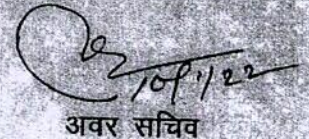 10/1/22
अवर सचिव